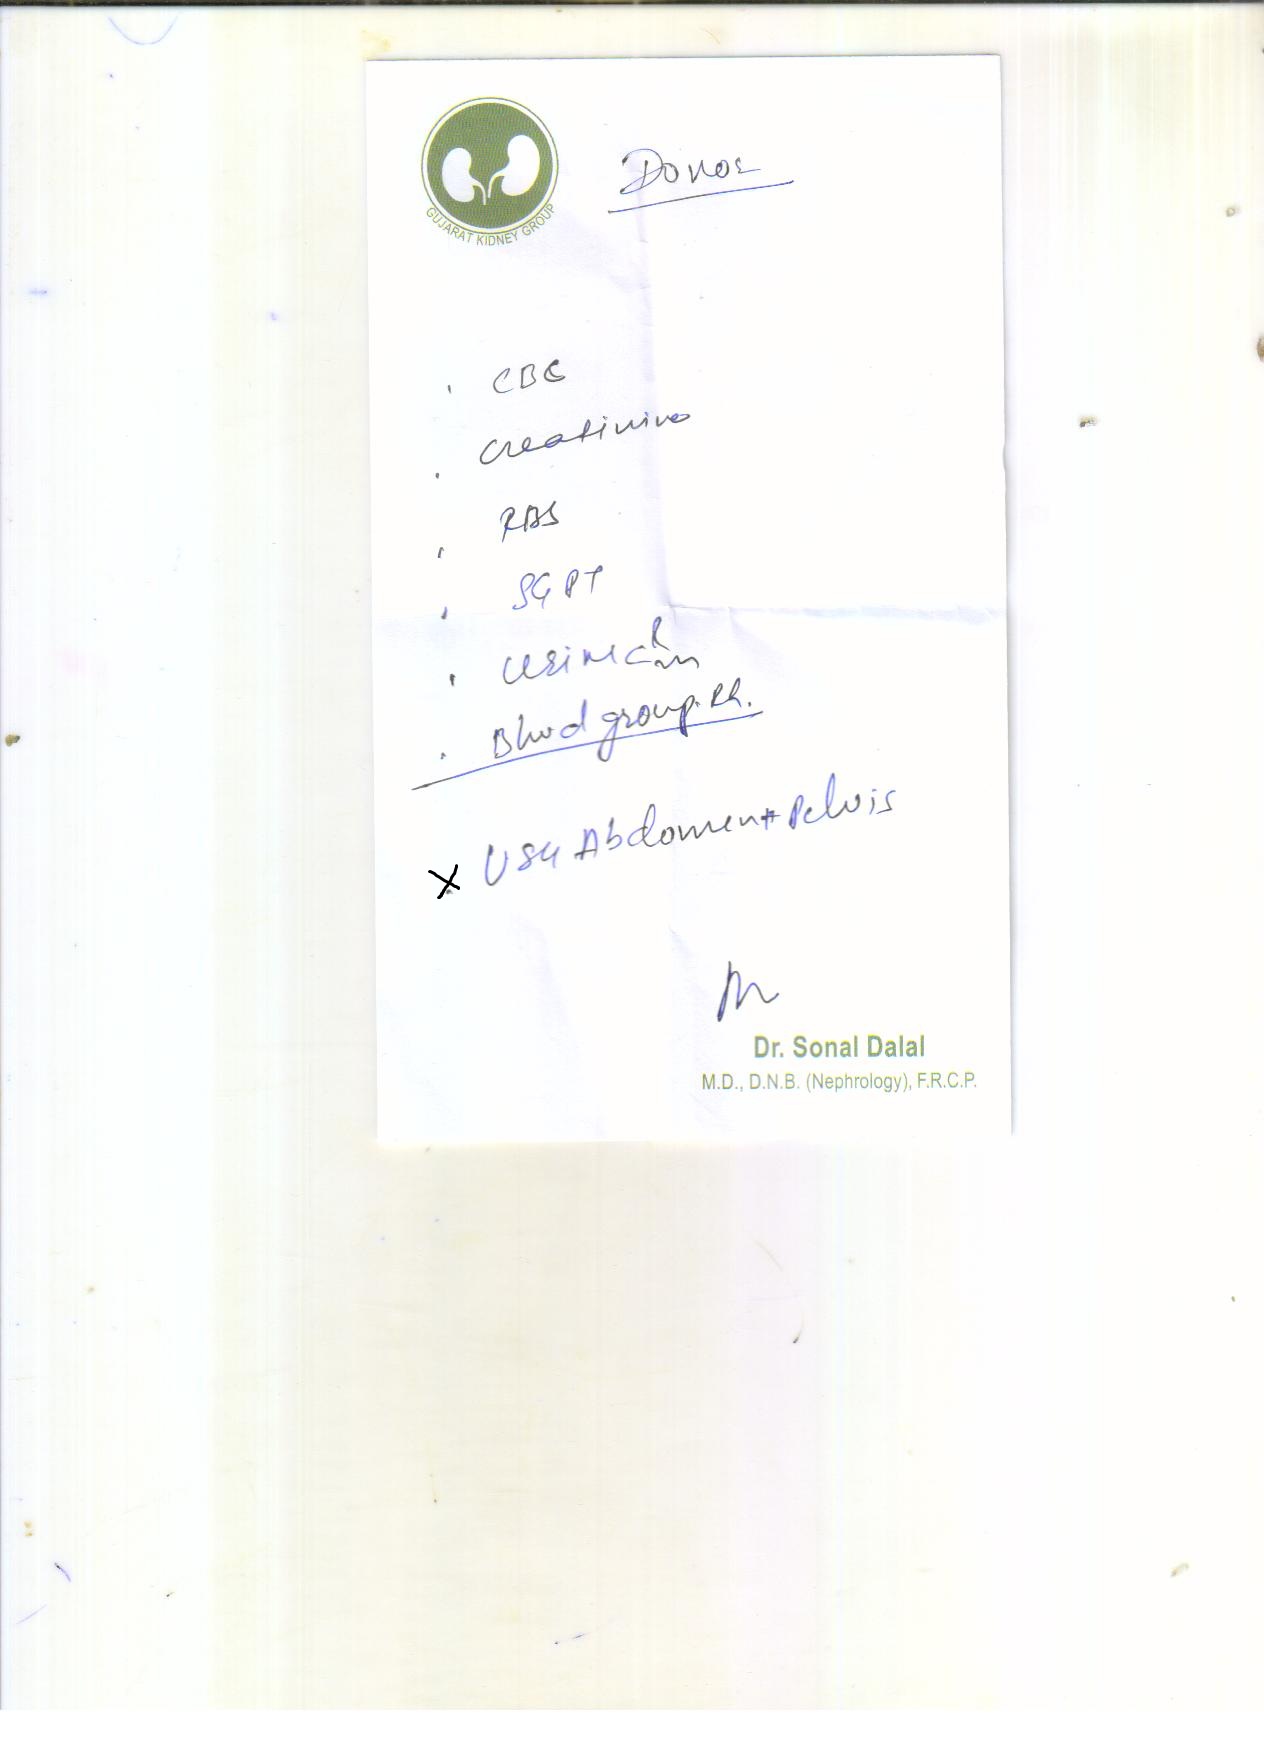 GUJARAT KIDNEY GROUP
Donor
. CBC
. Creatinine
. RBS
. SGPT
. Urine R/m
. Blood group. Rh.
X USG Abdomen + Pelvis
Dr. Sonal Dalal
M.D., D.N.B. (Nephrology), F.R.C.P.